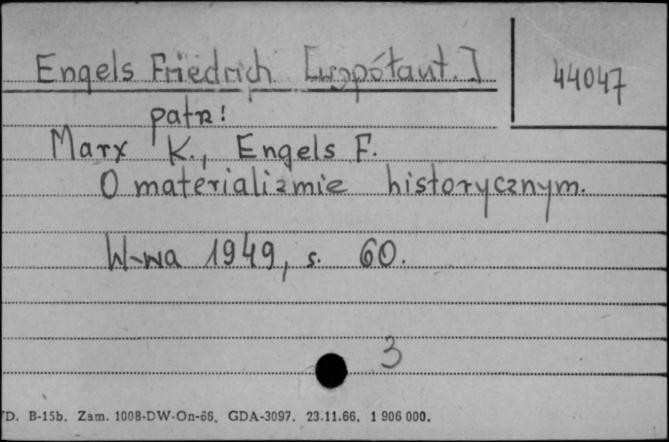 Engels Friedrich [współaut.]
44047
patrz!
Marx K., Engels F.
O materializmie historycznym.
W-wa 1949, s. 60.
3
D. B-15b. Zam. 1008-DW-On-66. GDA-3097. 23.11.66. 1 906 000.